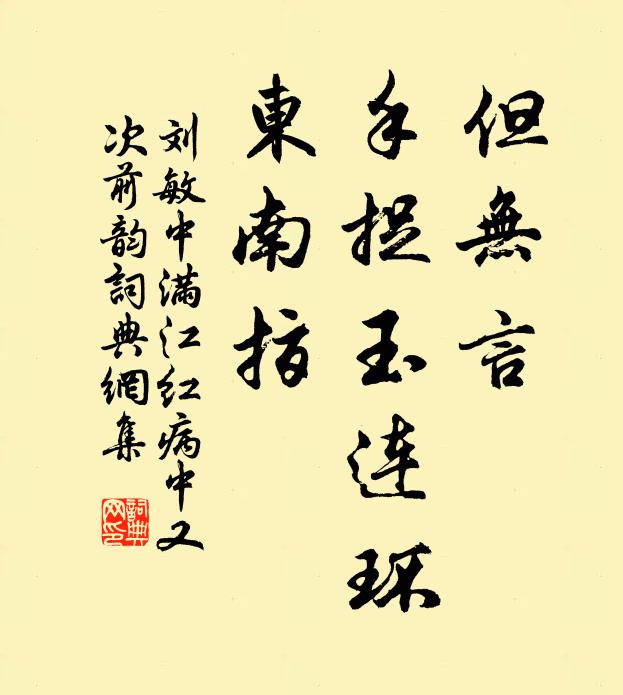 但無言
手捉玉连环
東南指
刘敏中满江红病中又
次前韵詞典網集
詞典
网印